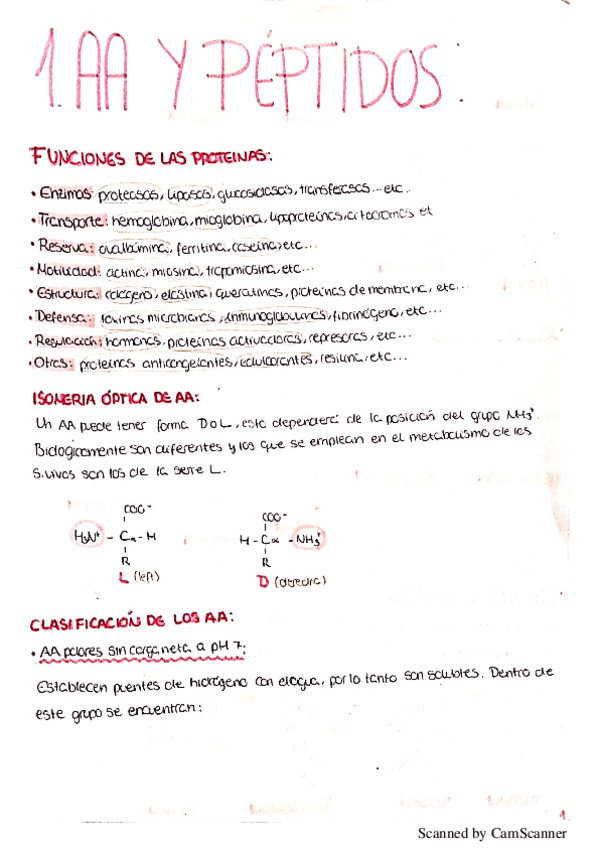 1. AA Y PÉPTIDOS:
FUNCIONES DE LAS PROTEINAS:
• Enzimas: proteasas, lipasas, glucosidasas, transferasas... etc..
• Transporte: hemoglobina, mioglobina, lipoproteínas, citocromos et
• Reserva: ovalbúmina, ferritina, caseína, etc...
• Motilidad: actina, miosina, tropomiosina, etc...
• Estructura: colágeno, elastina, queratinas, proteínas de membrana, etc...
• Defensa: toxinas microbianas, inmunoglobulinas, fibrinógeno, etc...
• Regulación: hormonas, proteínas activadoras, represoras, etc...
• Otras: proteínas anticongelantes, edulcorantes, resilina, etc...
ISOMERIA ÓPTICA DE AA:
Un AA puede tener forma D o L, esto dependerá de la posición del grupo NH3+.
Biológicamente son diferentes y los que se emplean en el metabolismo de los
S. vivos son los de la serie L.
COO- COO-
H3N+ - Cα - H H - Cα - NH3+
R R
L (left) D (derecha)
CLASIFICACIÓN DE LOS AA:
• AA polares sin carga neta a pH 7:
Establecen puentes de hidrógeno con el agua, por lo tanto son solubles. Dentro de
este grupo se encuentran:
1.
Scanned by CamScanner